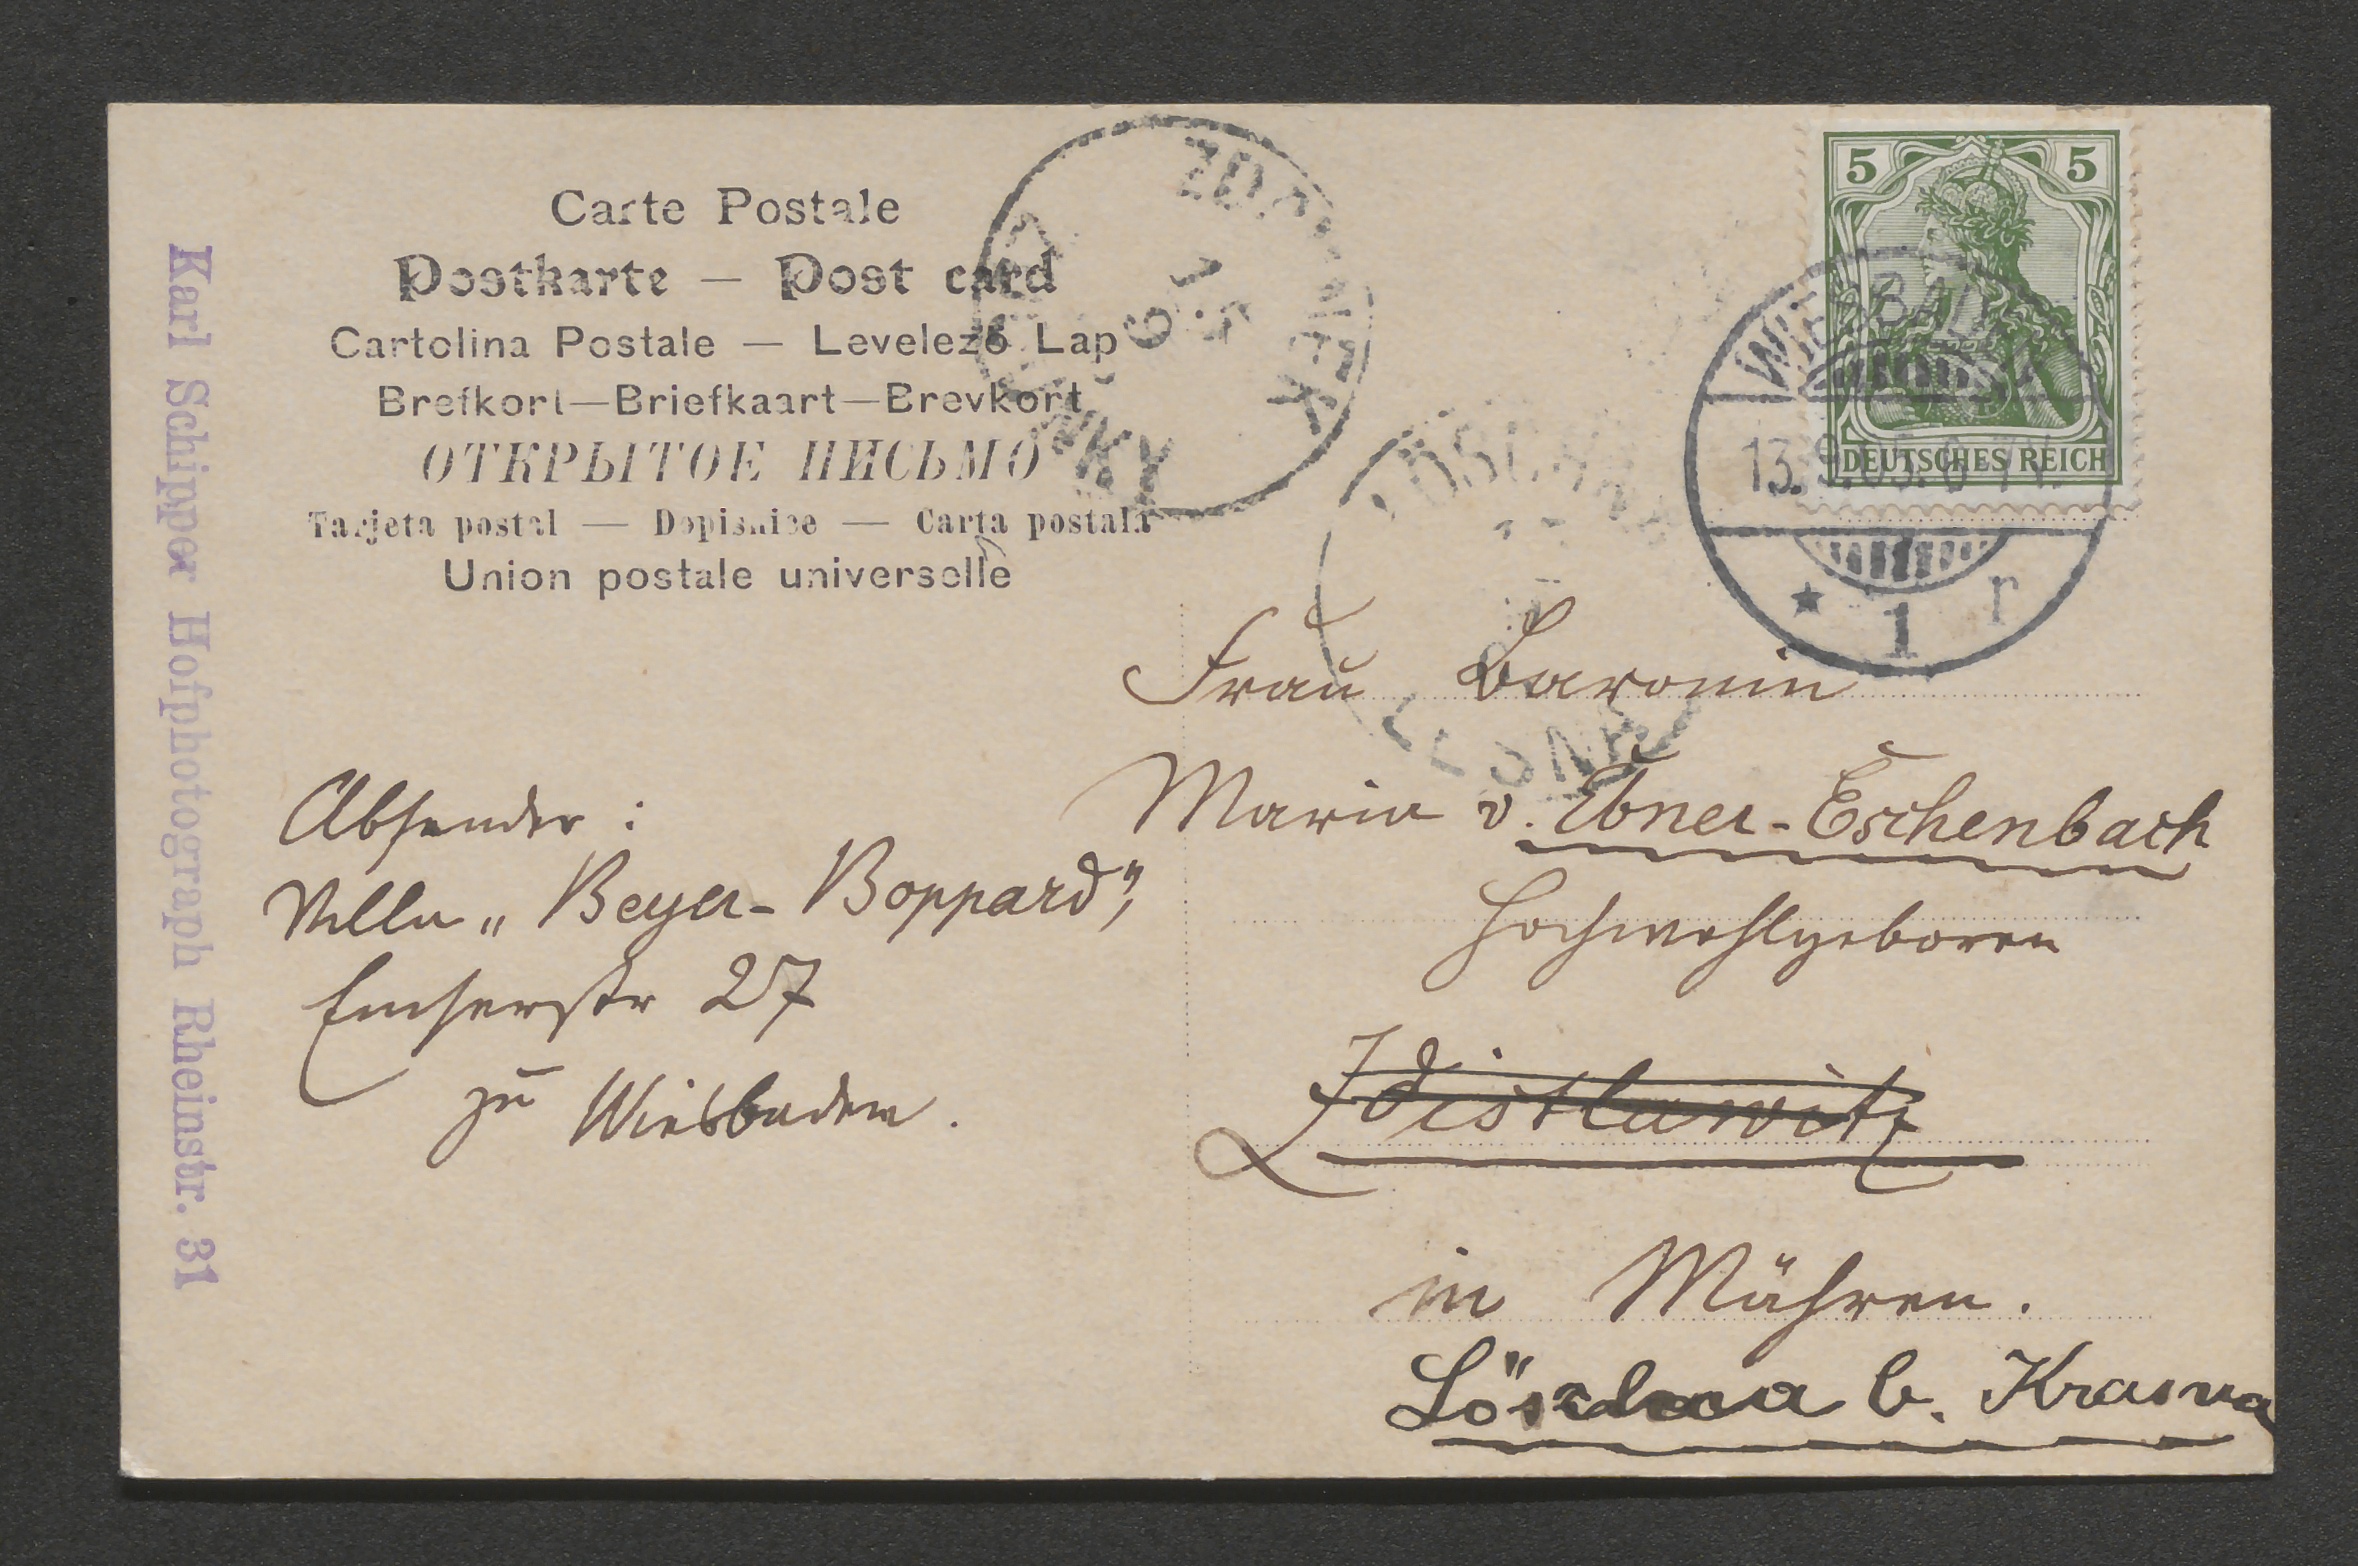 Carte Postale
Postkarte — Post card
Cartolina Postale — Levelező Lap
Brefkort—Briefkaart—Brevkort
ОТКРЫТОЕ ПИСЬМО
Tarjeta postal — Dopisnice — Carta postala
Union postale universelle
Karl Schipper Hofphotograph Rheinstr. 31
5 5
DEUTSCHES REICH
WIESBADEN
13.9.05. 6-7N.
* 1 r
Frau Baronin
Maria v. Ebner-Eschenbach
Hochwohlgeboren
Zdistlawitz
in Mähren.
Löschna b. Krasna
Absender:
Villa „Beyer-Boppard",
Emserstr 27
zu Wiesbaden.